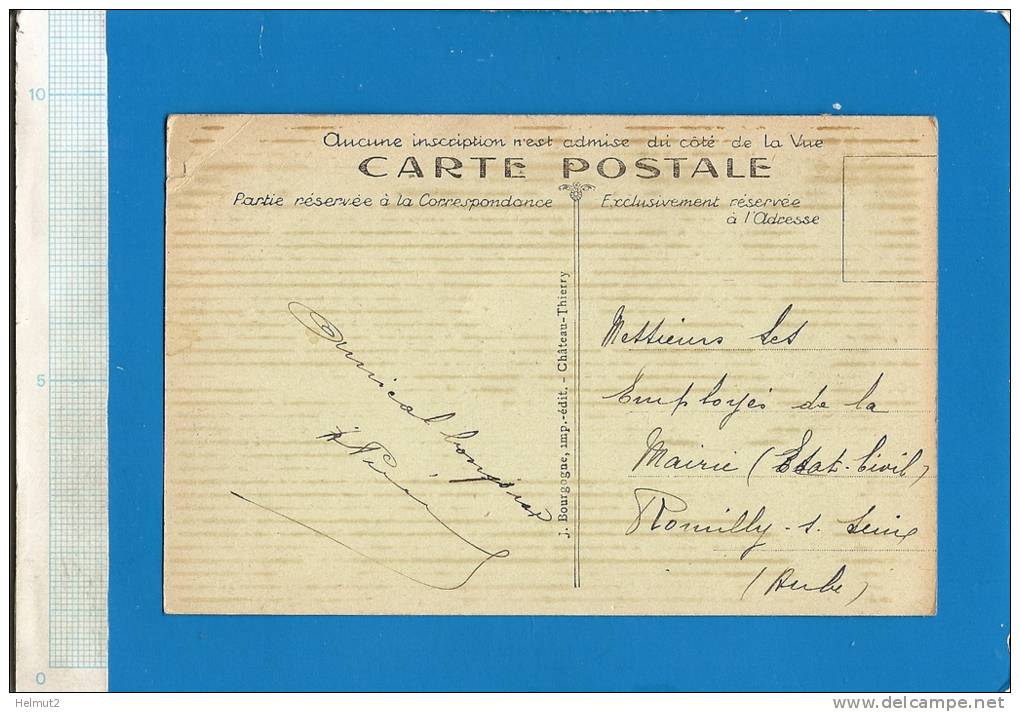 10
5
0
Aucune inscription n'est admise du côté de la Vue
CARTE POSTALE
Partie réservée à la Correspondance
Exclusivement réservée
à l'Adresse
J. Bourgogne, imp.-édit. - Château-Thierry
Amical bonjour
Messieurs les
Employés de la
Mairie (Etat-Civil)
Romilly-s. Seine
(Aube)
Helmut2
www.delcampe.net